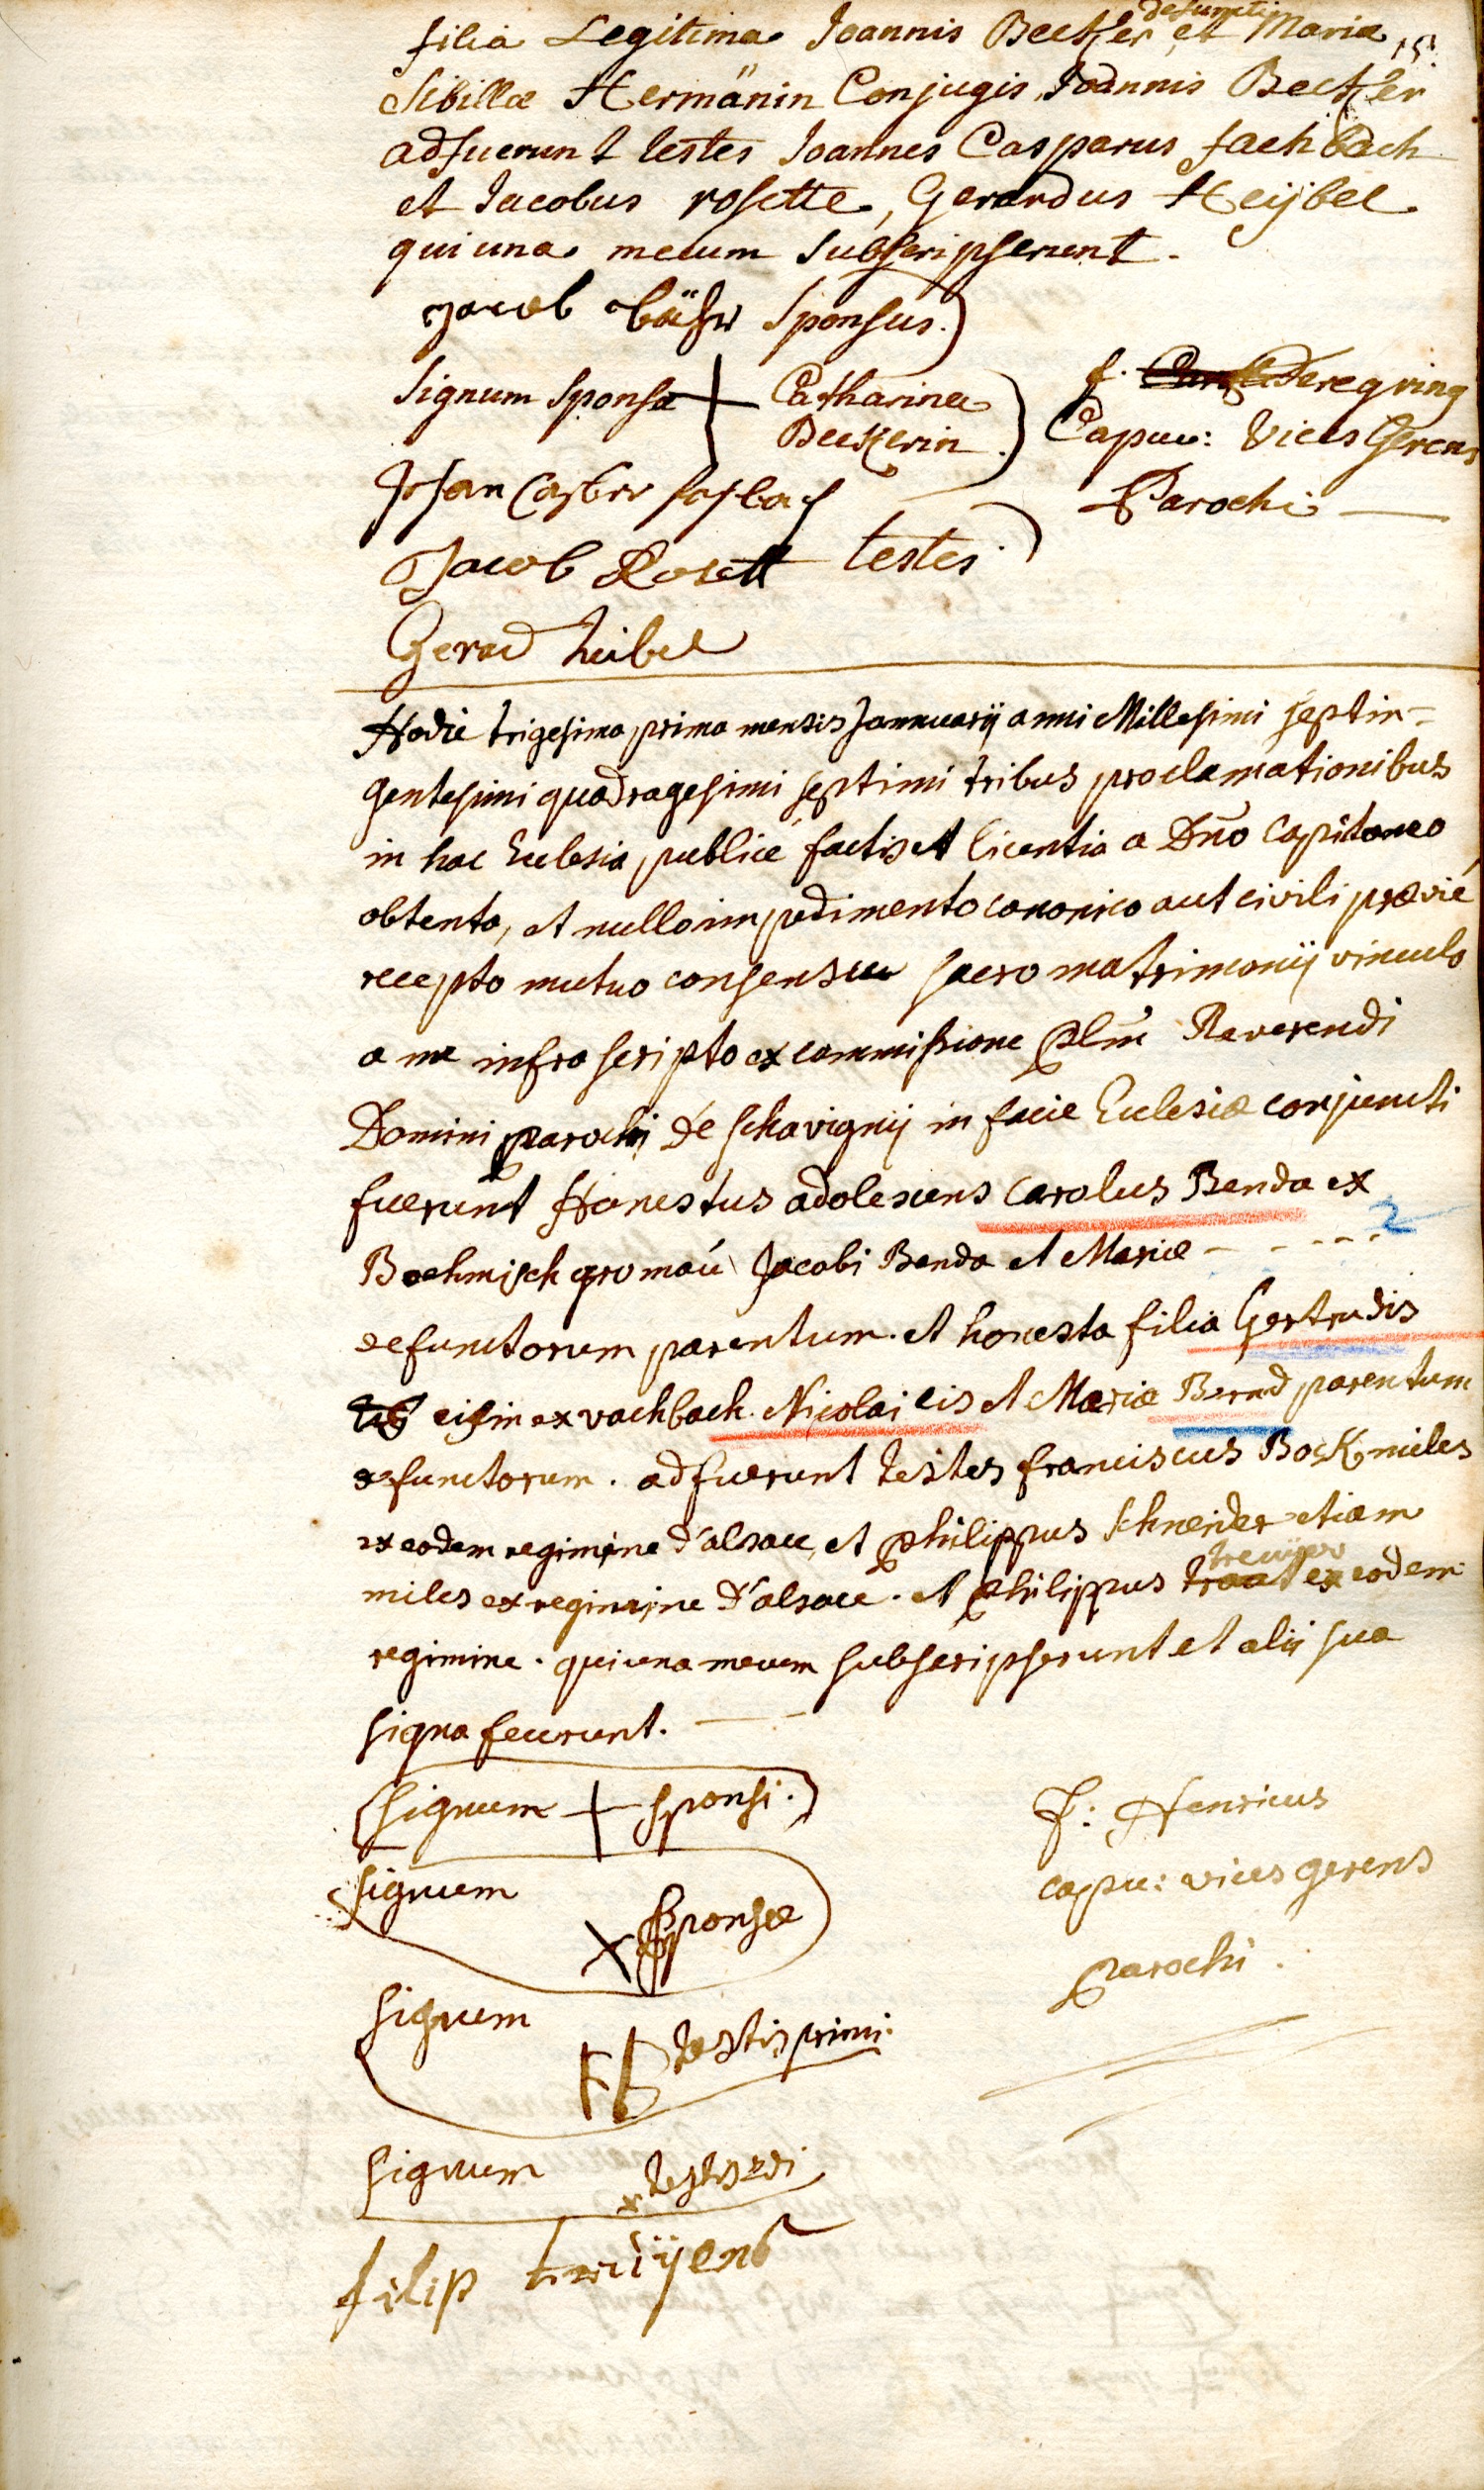 filia Legitima Joannis Becker defuncti et Mariæ 15.
Sibillæ Hermänin Conjugis Joannis Becker
adfuerunt testes Joannes Casparus fachbach
et Jacobus rosette, Gerardus Heijbel
qui una mecum subscripserunt.
Jacob bähr Sponsus.)
Signum Sponsæ + Catharinæ Beckerin.)
f. Peregrinq
Capuc: Vices Gerens
Parochi
Johan Casber fasbach
Jacob Rosett testes.)
Gerad heibel
Hodie trigesima prima mensis Jannuarij anni Millesimi septin=
gentesimi quadragesimi septimi tribus proclamationibus
in hac Ecclesia publicè factis et licentia a Dño Capitaneo
obtenta, et nullo impedimento canonico aut civili prævie
recepto mutuo consensu sacro matrimonij vinculo
a me infra scripto ex commissione plm̃ Reverendi
Domini parochi de schavignij in facie Ecclesiæ conjuncti
fuerunt Honestus adolescens Carolus Benda ex
Boehmisch gromaú Jacobi Benda et Mariæ - - - - - 2
defunctorum parentum. et honesta filia Gertrudis
eisin ex vachbach. Nicolai eis et Mariæ Bernd parentum
defunctorum. adfuerunt testes franciscus Bock miles
ex eodem regimine d'alsace, et philippus schneider etiam
miles ex regimine d'alsace. et philippus treuijer ex eodem
regimine. qui una mecum subscripserunt et alij sua
signa fecerunt.
Signum + sponsi.
Signum × Sponsæ
F: Henricus
capu: vices gerens
parochi.
Signum FB testis primi.
Signum × testis 2di
filip